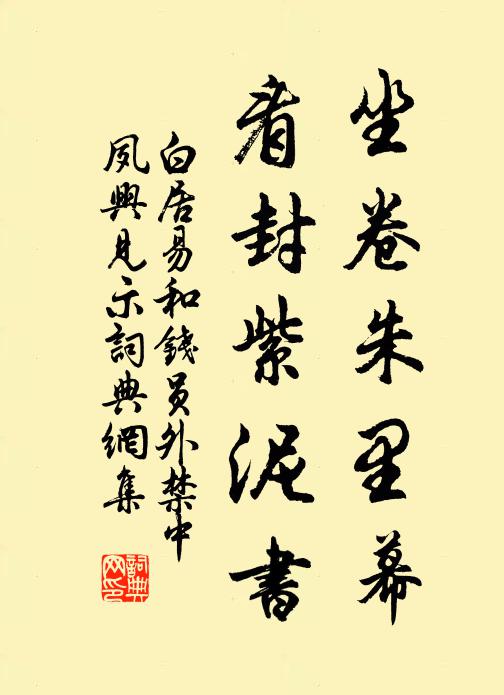 坐卷朱里幕
看封紫泥書
白居易和錢員外禁中
夙興見示詞典網集
詞典
网印